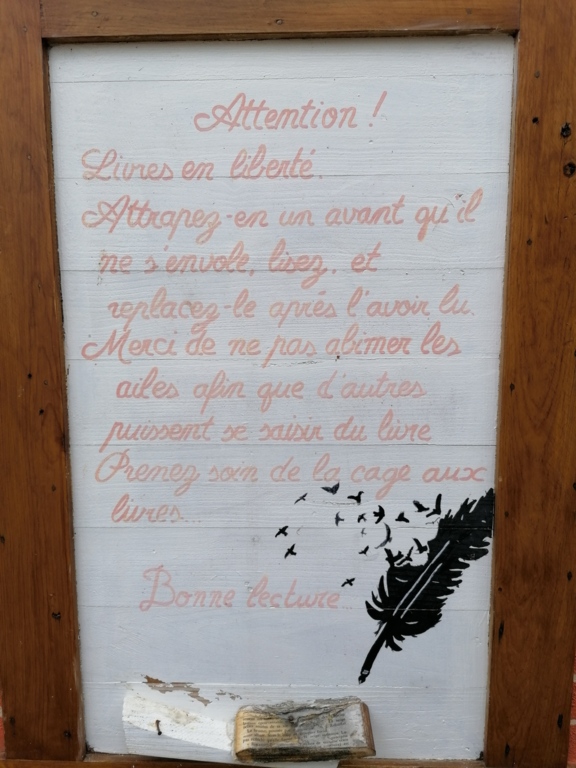 Attention !
Livres en liberté.
Attrapez-en un avant qu'il
ne s'envole, lisez, et
replacez-le aprés l'avoir lu.
Merci de ne pas abimer les
ailes afin que d'autres
puissent se saisir du livre
Prenez soin de la cage aux
livres...
Bonne lecture...